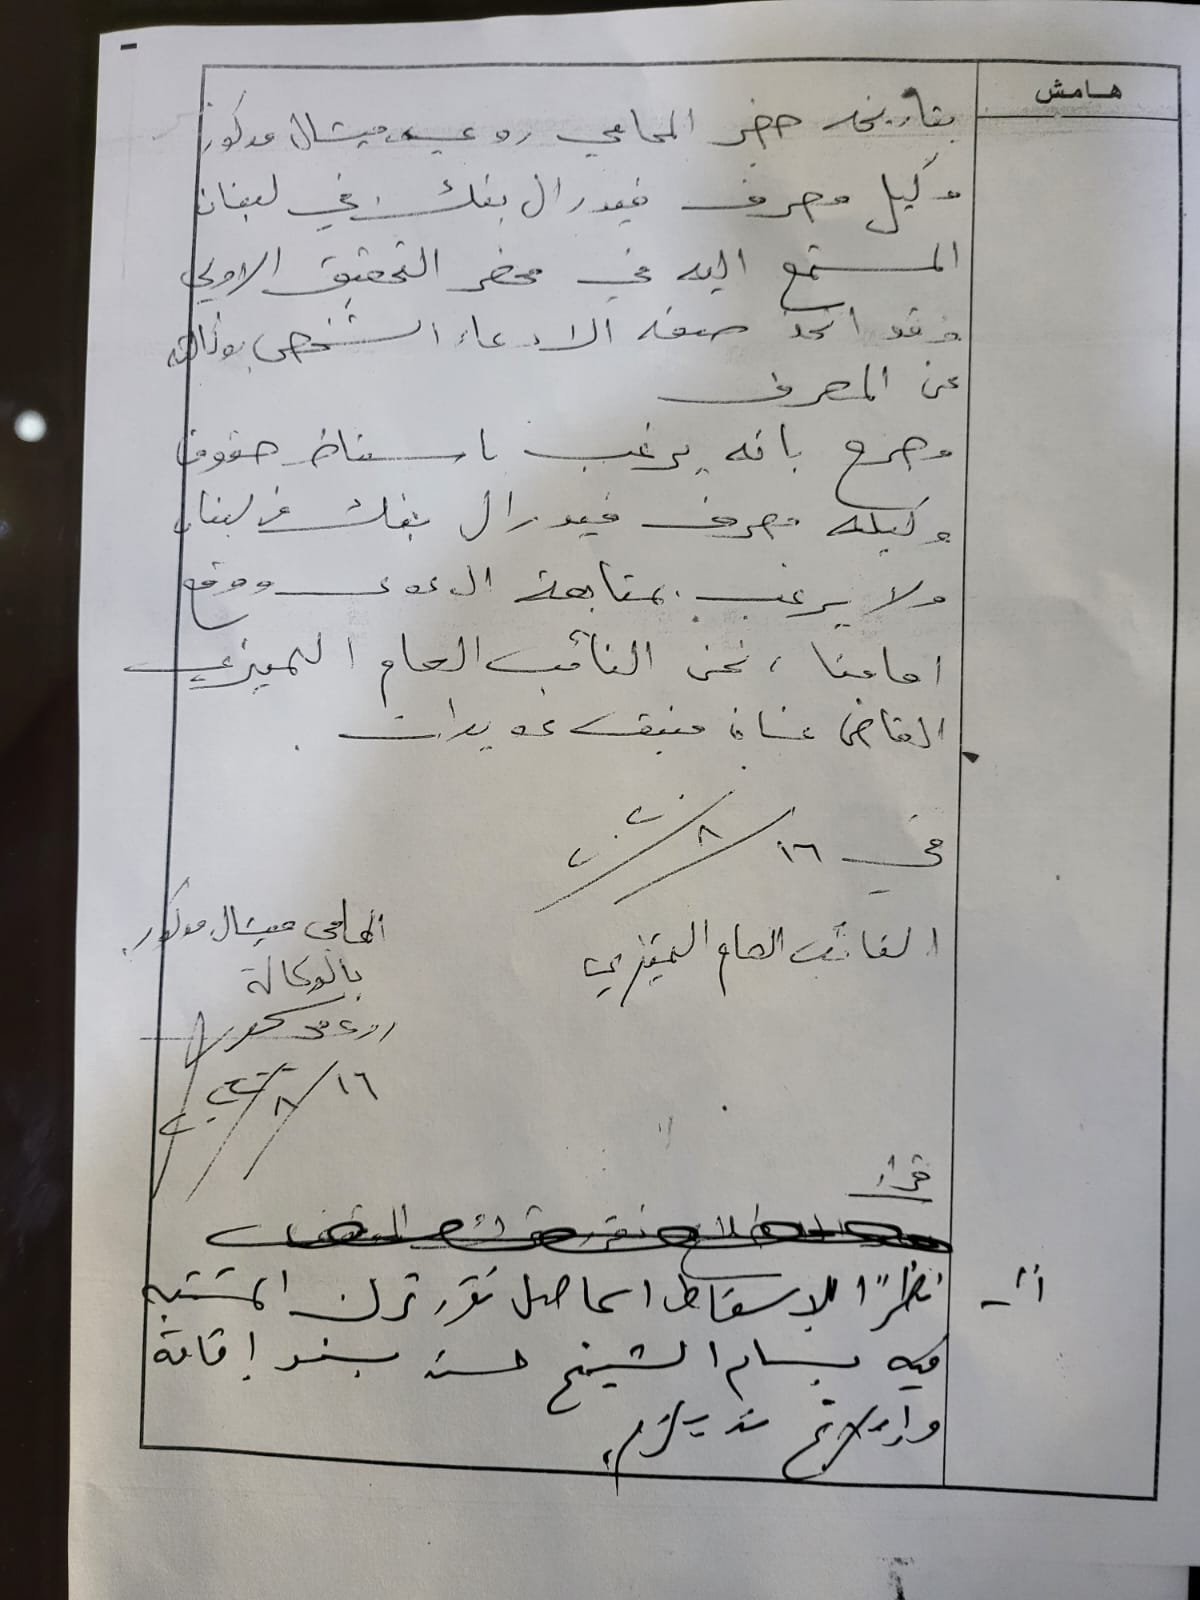 هامش
بتاريخه حضر المحامي روعيه ميشال مدكور
وكيل مصرف فيدرال بنك في لبنان
المستمع اليه في محضر التحقيق الاولي
وقد اتخذ صفة الادعاء الشخصي بوكالته
عن المصرف
وصرح بانه يرغب باسقاط حقوق
وكيله مصرف فيدرال بنك في لبنان
ولا يرغب بمتابعة الدعوى ووقع
امامنا، نحن النائب العام التمييزي
القاضي غسان منيف عويدات.
في ١٦/٨/٢٠٢٢
النائب العام التمييزي
المحامي ميشال مدكور
بالوكالة
١٦/٨/
قرار
نظراً للإسقاط الحاصل نقرر ترك المشتبه
فيه بسام الشيخ حسين بسند إقامة
وإبلاغ من يلزم.